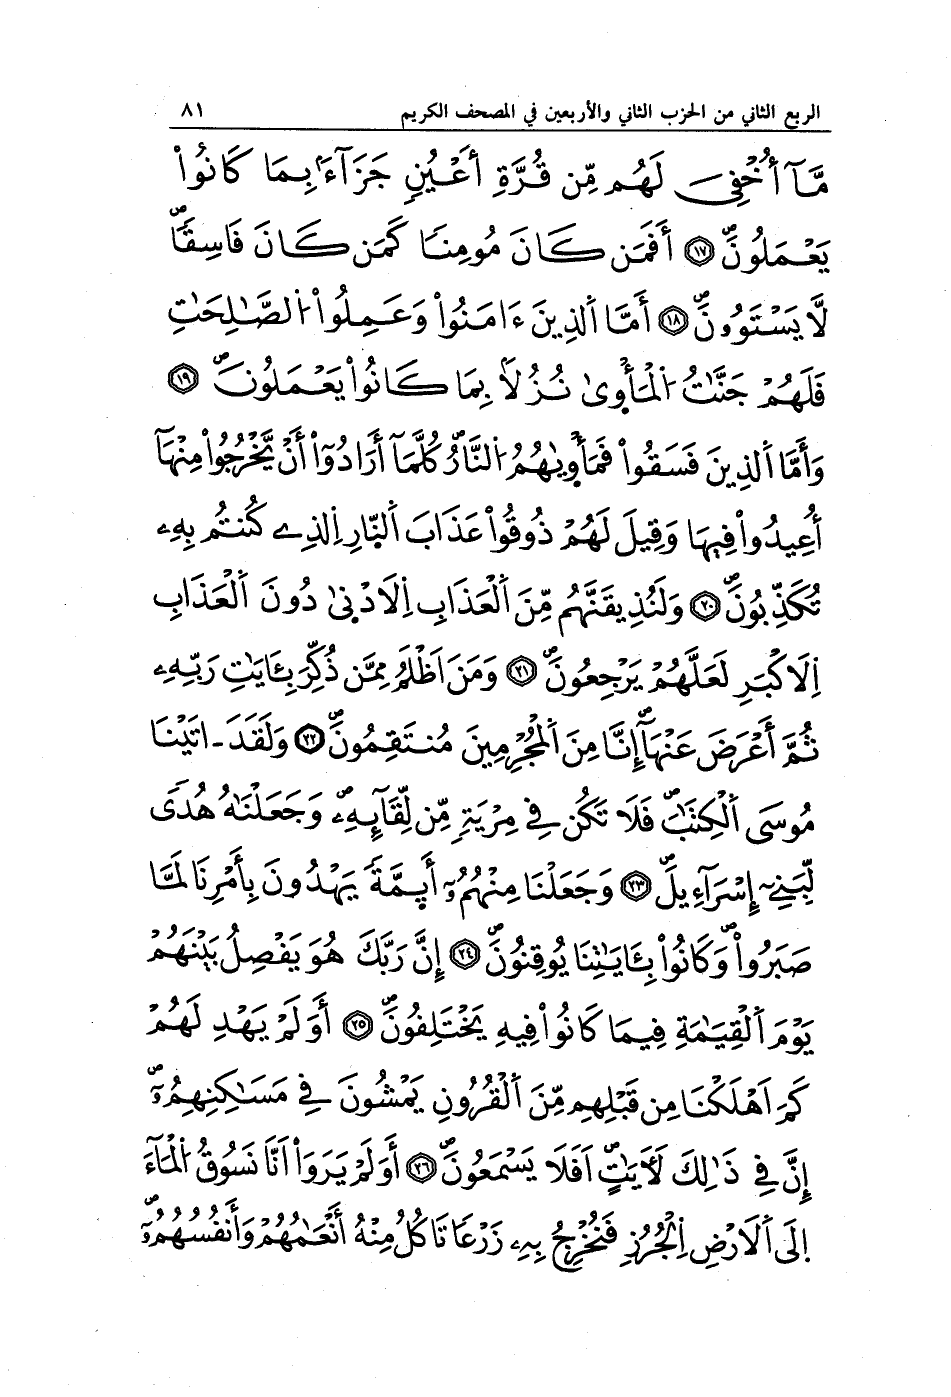 الربع الثاني من الحزب الثاني والأربعين في المصحف الكريم ٨١
مَّآ أُخْفِيَ لَهُم مِّن قُرَّةِ أَعْيُنٖ جَزَآءَۢ بِمَا كَانُواْ
يَعْمَلُونَۖ ١٧ أَفَمَن كَانَ مُومِناٗ كَمَن كَانَ فَاسِقاٗۖ
لَّا يَسْتَوُۥنَۖ ١٨ أَمَّا اَ۬لذِينَ ءَامَنُواْ وَعَمِلُواْ اُ۬لصَّٰلِحَٰتِ
فَلَهُمْ جَنَّٰتُ اُ۬لْمَأْو۪ىٰ نُزُلاَۢ بِمَا كَانُواْ يَعْمَلُونَۖ ١٩
وَأَمَّا اَ۬لذِينَ فَسَقُواْ فَمَأْو۪ىٰهُمُ اُ۬لنَّارُۖ كُلَّمَآ أَرَادُوٓاْ أَنْ يَّخْرُجُواْ مِنْهَآ
أُعِيدُواْ فِيهَا وَقِيلَ لَهُمْ ذُوقُواْ عَذَابَ اَ۬لنّ۪ارِ اِ۬لذِے كُنتُم بِهِۦ
تُكَذِّبُونَۖ ٢٠ وَلَنُذِيقَنَّهُم مِّنَ اَ۬لْعَذَابِ اِ۬لَادْن۪ىٰ دُونَ اَ۬لْعَذَابِ
اِ۬لَاكْبَرِ لَعَلَّهُمْ يَرْجِعُونَۖ ٢١ وَمَنَ اَظْلَمُ مِمَّن ذُكِّرَ بِـَٔايَٰتِ رَبِّهِۦ
ثُمَّ أَعْرَضَ عَنْهَآۖ إِنَّا مِنَ اَ۬لْمُجْرِمِينَ مُنتَقِمُونَۖ ٢٢ وَلَقَدَ ـ اتَيْنَا
مُوسَى اَ۬لْكِتَٰبَۖ فَلَا تَكُن فِے مِرْيَةٖ مِّن لِّقَآئِهِۦۖ وَجَعَلْنَٰهُ هُدىٗ
لِّبَنِےٓ إِسْرَآءِيلَۖ ٢٣ وَجَعَلْنَا مِنْهُمُۥٓ أَئِمَّةٗ يَهْدُونَ بِأَمْرِنَا لَمَّا
صَبَرُواْۖ وَكَانُواْ بِـَٔايَٰتِنَا يُوقِنُونَۖ ٢٤ إِنَّ رَبَّكَ هُوَ يَفْصِلُ بَيْنَهُمْ
يَوْمَ اَ۬لْقِيَٰمَةِ فِيمَا كَانُواْ فِيهِ يَخْتَلِفُونَۖ ٢٥ أَوَلَمْ يَهْدِ لَهُمْ
كَمَ اَهْلَكْنَا مِن قَبْلِهِم مِّنَ اَ۬لْقُرُونِ يَمْشُونَ فِے مَسَٰكِنِهِمُۥٓۖ
إِنَّ فِے ذَٰلِكَ لَأٓيَٰتٍۖ اَفَلَا يَسْمَعُونَۖ ٢٦ أَوَلَمْ يَرَوَاْ اَنَّا نَسُوقُ اُ۬لْمَآءَ
اِلَى اَ۬لَارْضِ اِ۬لْجُرُزِ فَنُخْرِجُ بِهِۦ زَرْعاٗ تَاكُلُ مِنْهُ أَنْعَٰمُهُمْ وَأَنفُسُهُمُۥٓۖ